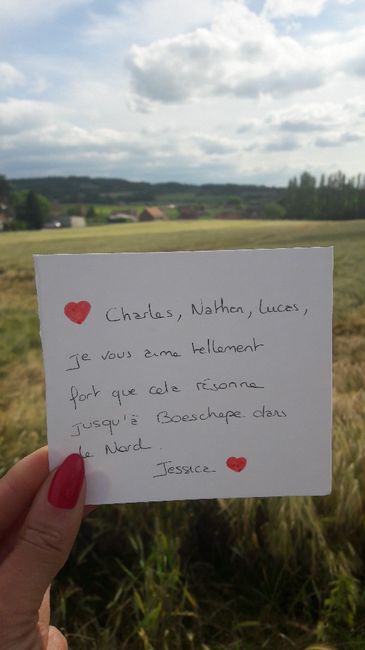 Charles, Nathan, Lucas,
je vous aime tellement
fort que cela résonne
jusqu'à Boeschepe dans
le Nord.
Jessica